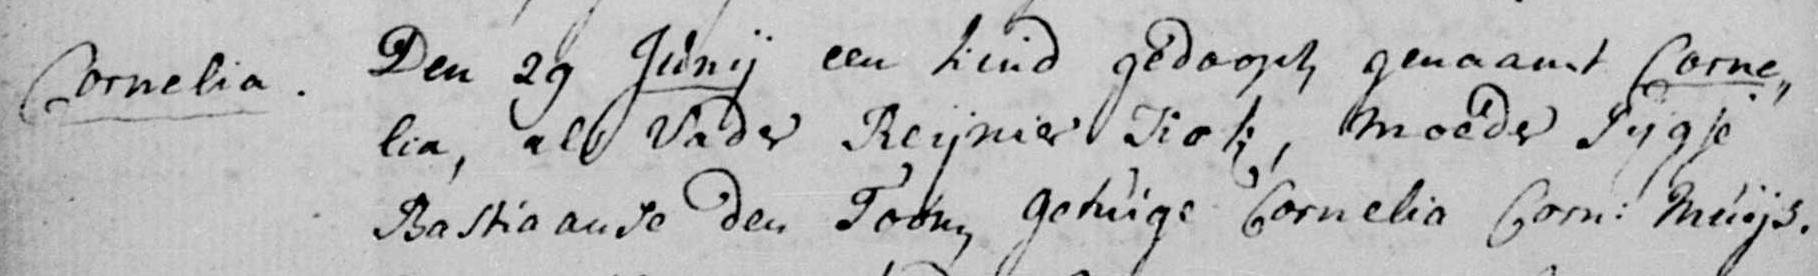 Cornelia.
Den 29 Junij een kind gedoopt, genaamt Corne„
lia, als Vader Reijnier Kok, Moeder Pijgje
Bastiaanse den Toom, getuige Cornelia Corn: Muijs.